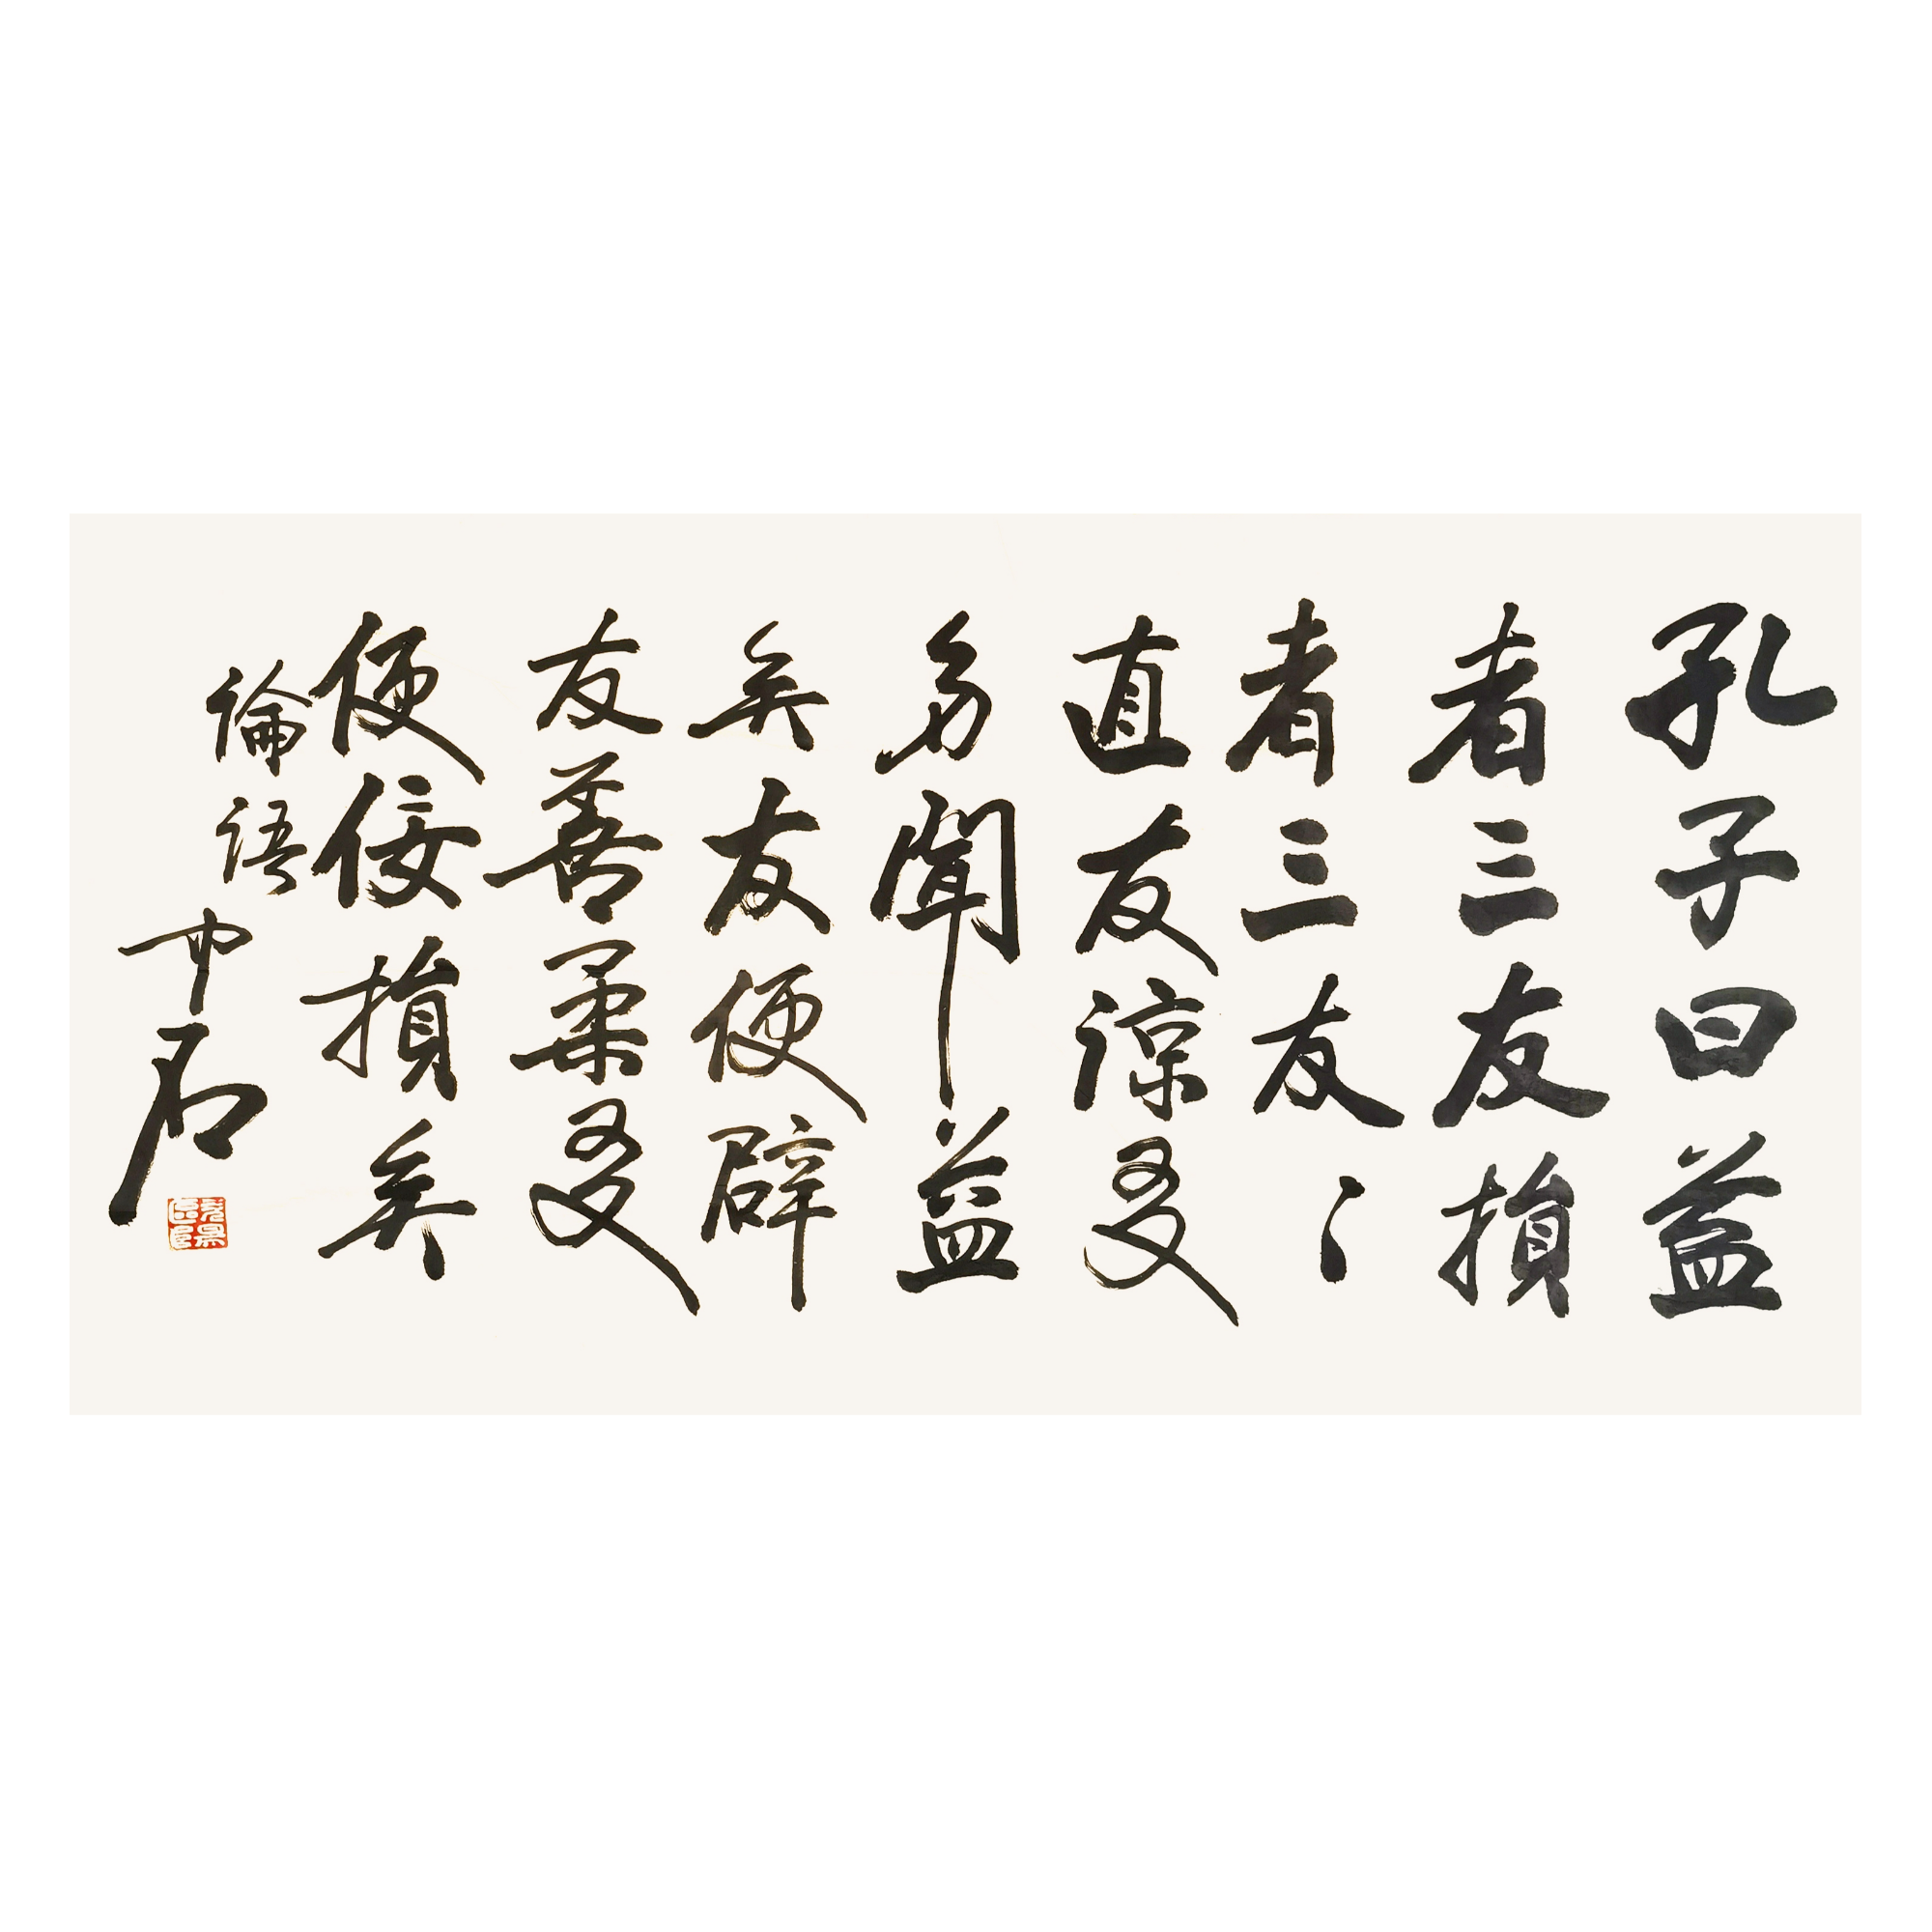 孔子曰益
者三友損
者三友〻
直友諒友
多聞益
矣友便辟
友善柔友
便佞損矣
論語
中石